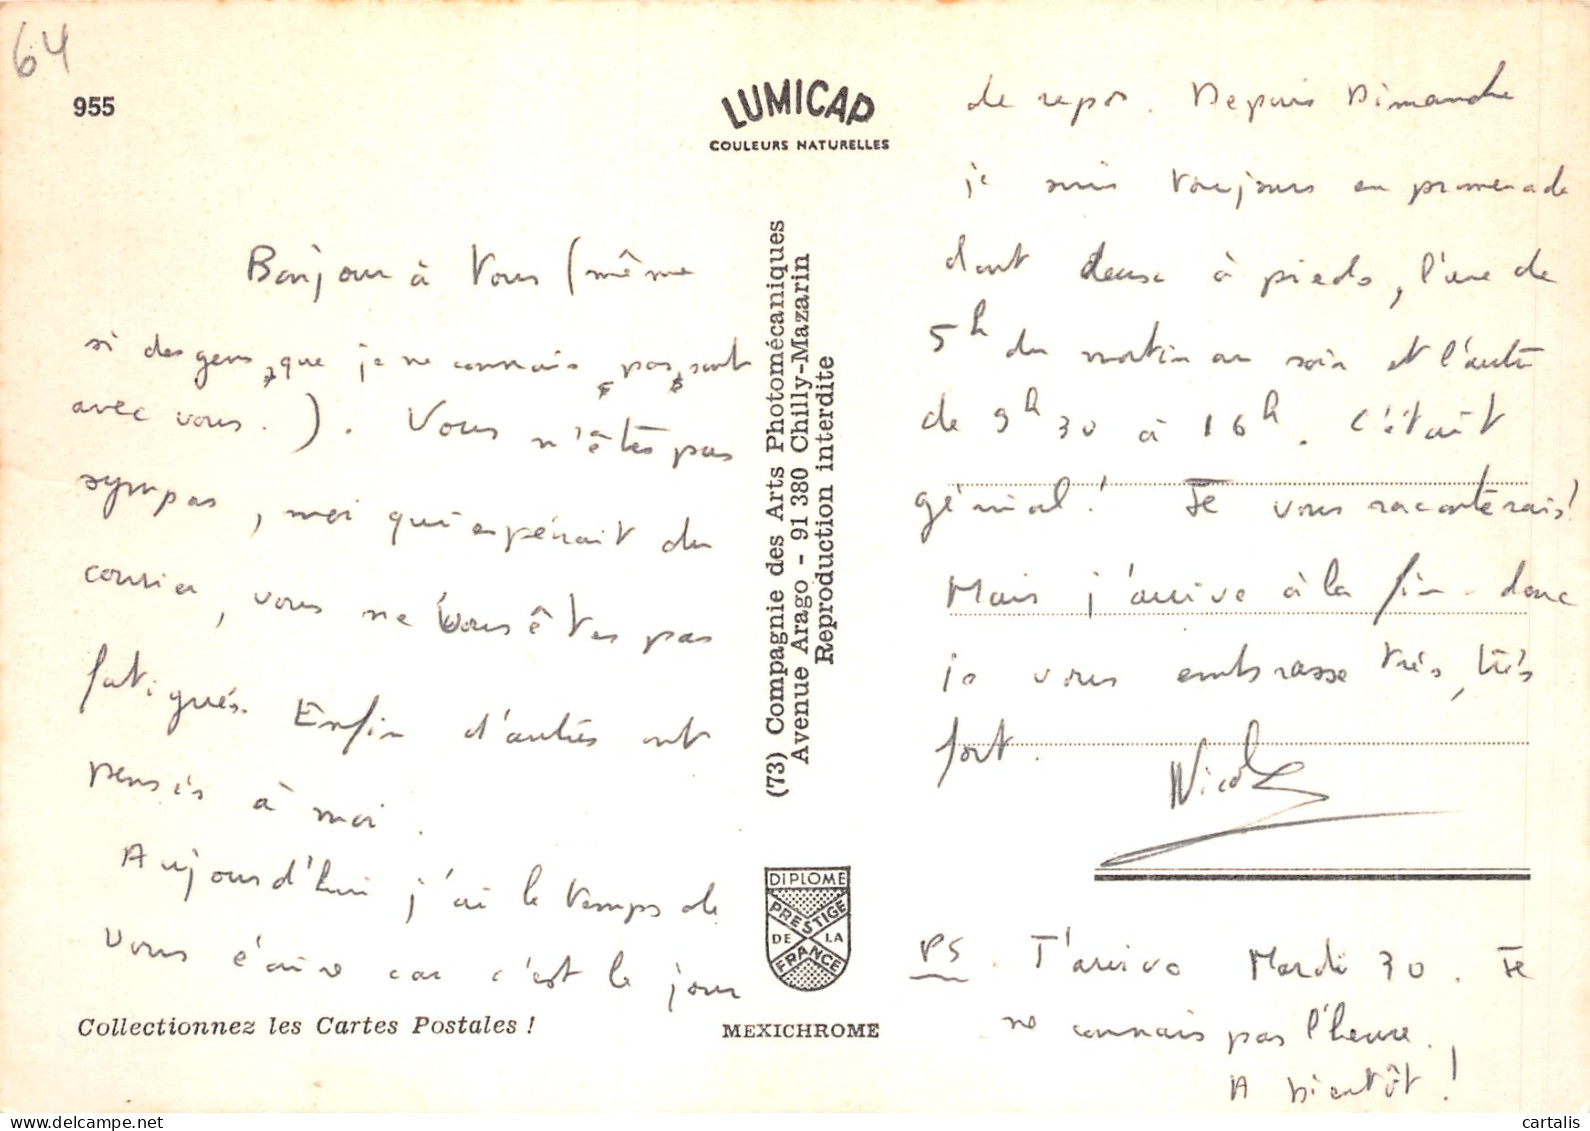 64
955
LUMICAP
COULEURS NATURELLES
Bonjour à Vous (même
si des gens, que je ne connais pas, sont
avec vous.). Vous n'êtes pas
sympas, moi qui espérait du
courier, vous ne vous êtes pas
fatigués. Enfin d'autres ont
pensés à moi.
Aujourd'hui j'ai le temps de
vous écrire car c'est le jour
de repos. Depuis Dimanche
je suis toujours en promenade
dont deux à pieds, l'une de
5h du matin au soir et l'autre
de 9h30 à 16h. C'était
génial! Je vous raconterais!
Mais j'arrive à la fin donc
je vous embrasse très, très
fort.
Nicolas
PS. J'arrive Mardi 30. Je
ne connais pas l'heure.
A bientôt!
(73) Compagnie des Arts Photomécaniques
Avenue Arago - 91 380 Chilly-Mazarin
Reproduction interdite
DIPLOME
PRESTIGE
DE LA
FRANCE
Collectionnez les Cartes Postales !
MEXICHROME
cartalis